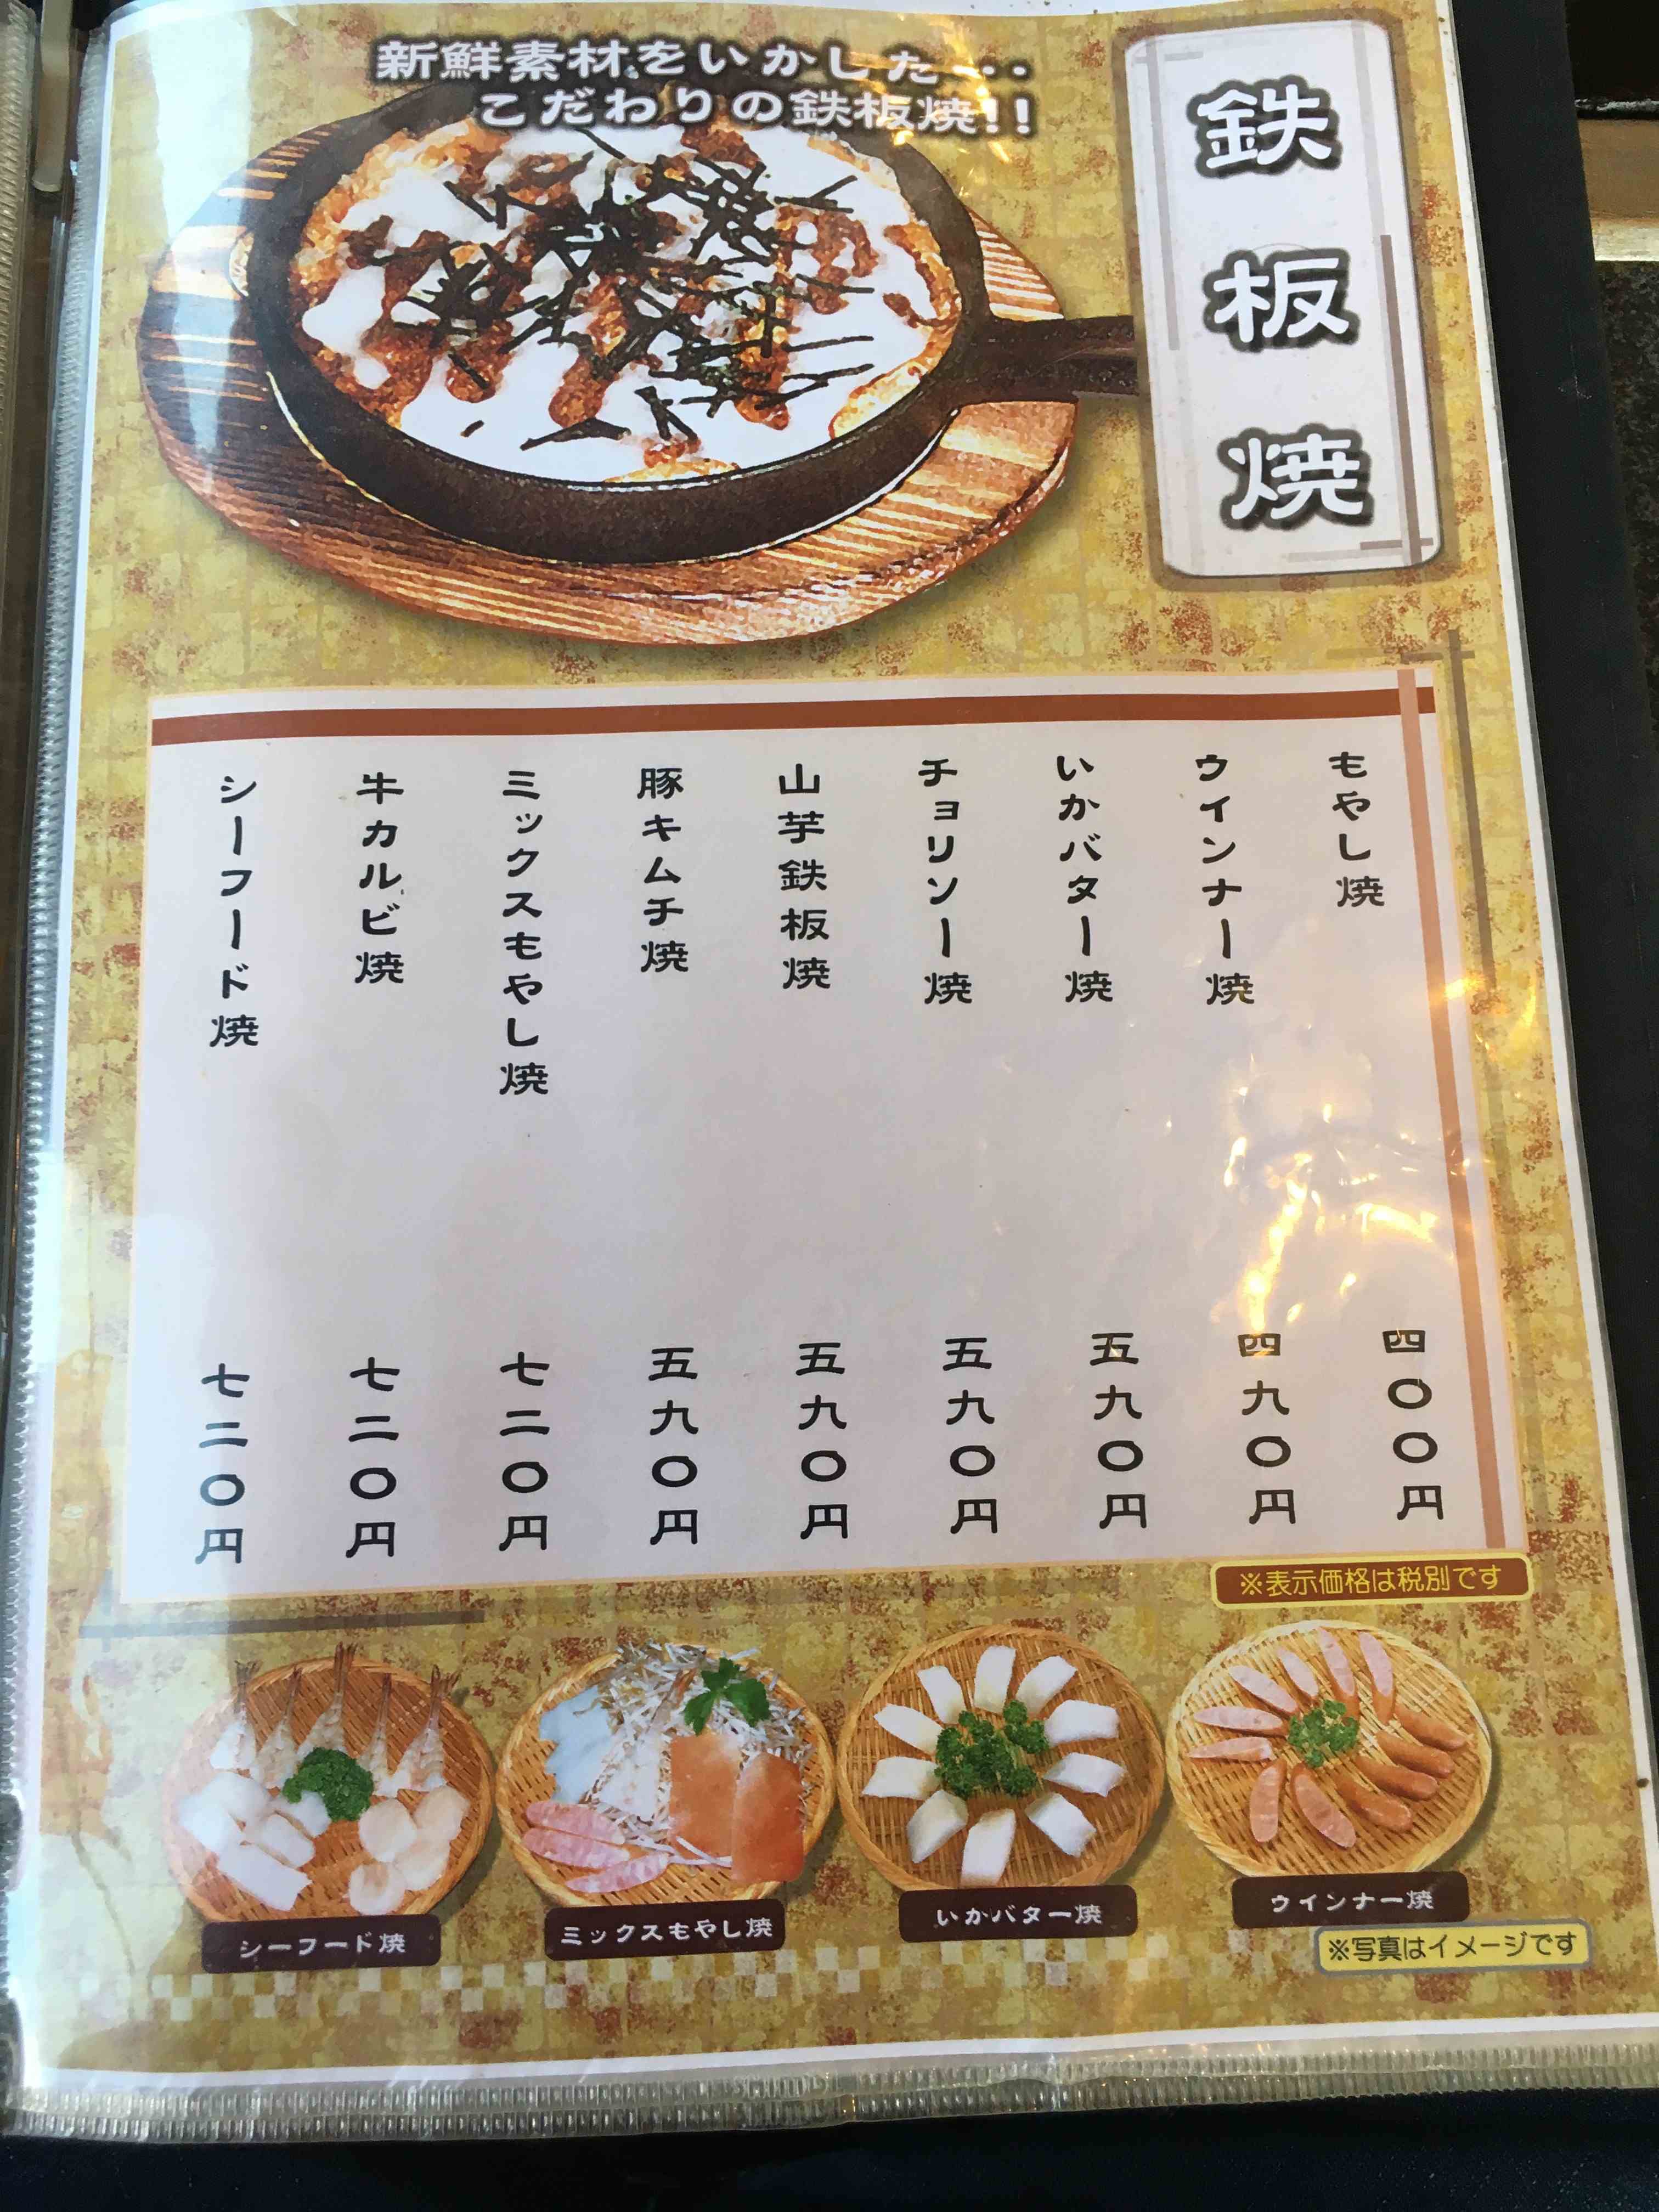 新鮮素材をいかした・・・
こだわりの鉄板焼!!
鉄板焼
もやし焼 四〇〇円
ウインナー焼 四九〇円
いかバター焼 五九〇円
チョリソー焼 五九〇円
山芋鉄板焼 五九〇円
豚キムチ焼 五九〇円
ミックスもやし焼 七二〇円
牛カルビ焼 七二〇円
シーフード焼 七二〇円
※表示価格は税別です
シーフード焼
ミックスもやし焼
いかバター焼
ウインナー焼
※写真はイメージです